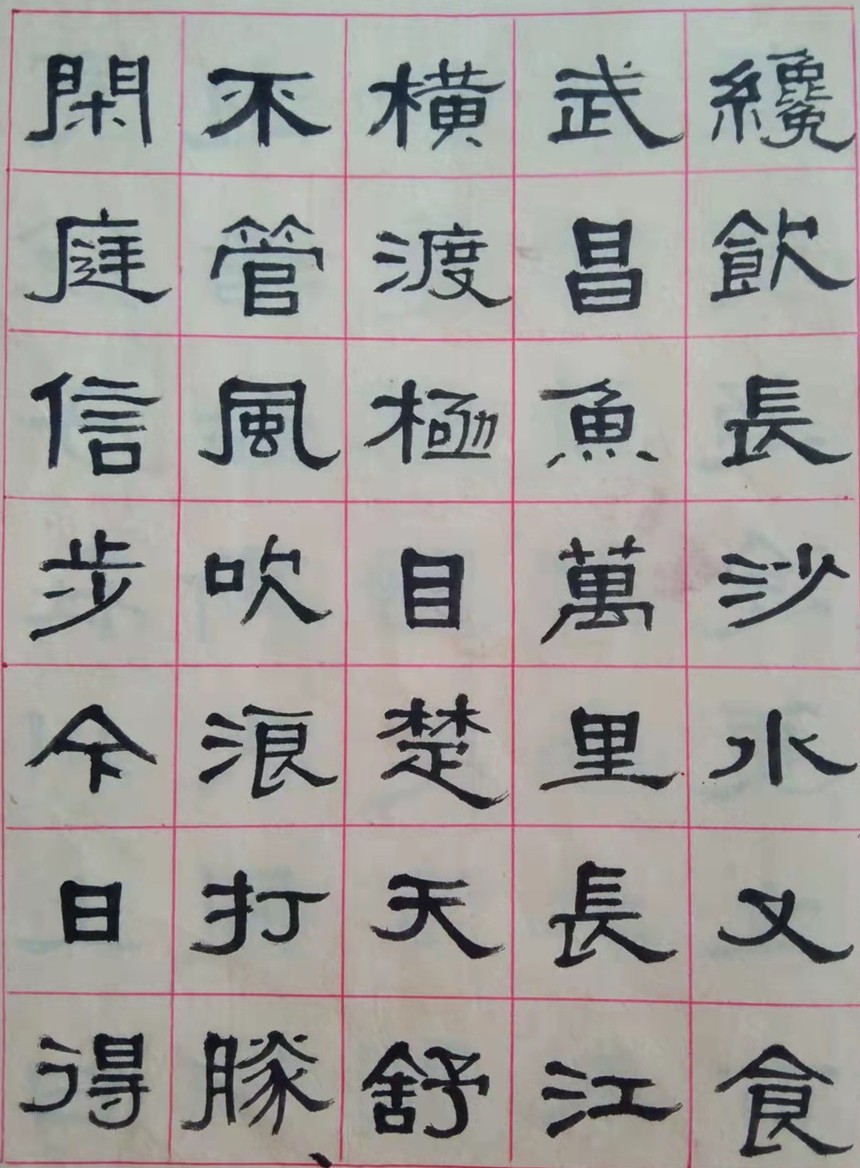 纔飲長沙水又食
武昌魚萬里長江
橫渡極目楚天舒
不管風吹浪打勝
閑庭信步今日得